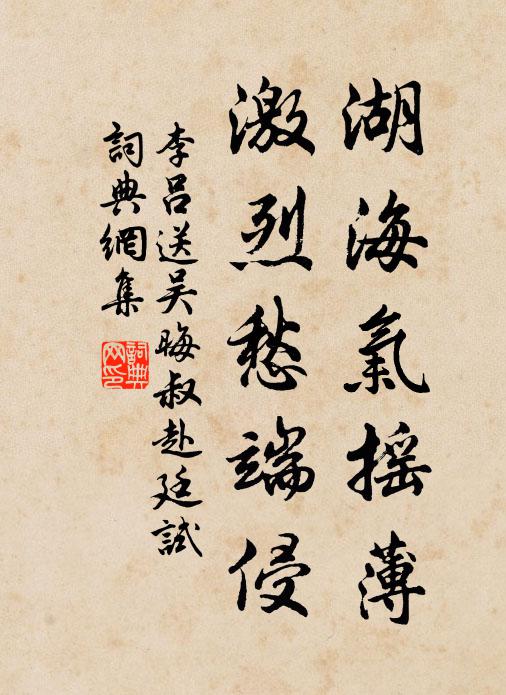 湖海氣摇薄
激烈愁端侵
李吕送吴晦叔赴廷試
詞典網集
詞典網印